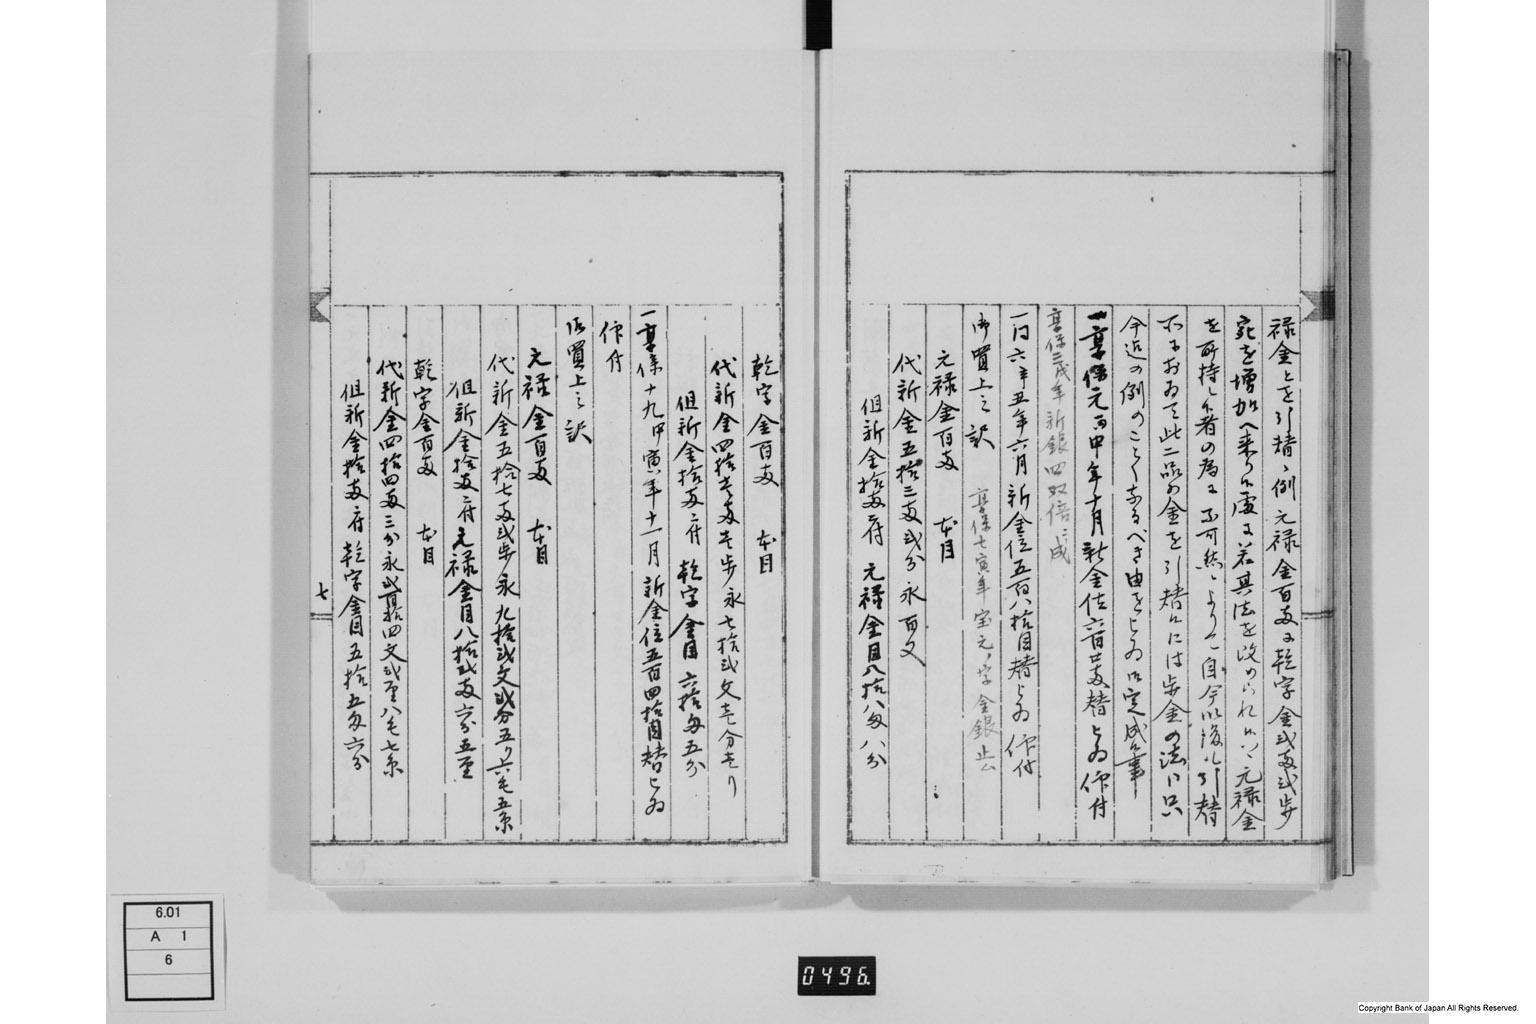 禄金とを引替ゝ例元禄金百両ニ乾字金弐両弐歩
宛を増加へ来り候処ニ若其法を改められ候ハヽ元禄金
を所持し候者の為に不可然によりて自今以後も引替
所におゐて此二品の金を引替候には歩金の法ハ只
今迄の例のことくなるべき由を以御定成候事
一享保元丙申年十月新金
享保三戌年新銀四双倍ニ成
一同六辛丑年六月新金位五百八拾目替ゟ被仰付
御買上之訳
享保七寅年宝元ノ字金銀止ム
元禄金百両 本目
代新金五拾三両弐分永百文
但新金拾両ニ付 元禄金目八拾八匁八分
乾字金百両 本目
代新金四拾壱両壱歩永七拾弐文壱分壱り
但新金拾両ニ付 乾字金目六拾匁五分
一享保十九甲寅年十一月新金位五百四拾目替ゟ被
仰付
御買上之訳
元禄金百両 本目
代新金五拾七両弐歩永九拾弐文弐分五り六毛五糸
但新金拾両ニ付元禄金目八拾弐匁六分五厘
乾字金百両 本目
代新金四拾四両三分永弐百拾四文弐厘八毛七糸
但新金拾両ニ付乾字金目五拾五匁六分
七
6.01
A 1
6
0496.
Copyright Bank of Japan All Rights Reserved.